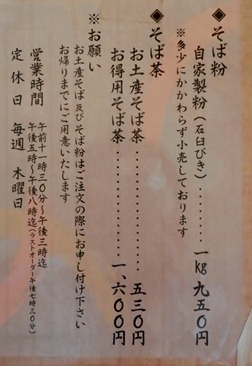 ◈そば粉
自家製粉(石臼びき)…………一kg 九五〇円
※多少にかかわらず小売しております
◈そば茶
お土産そば茶……………………五三〇円
お得用そば茶…………………一、六〇〇円
※お願い
お土産そば及びそば粉はご注文の際にお申し付け下さい
お帰りまでにご用意いたします
営業時間 午前十一時三〇分〜午後三時迄
午後五時〜午後八時迄(ラストオーダー午後七時三〇分)
定休日 毎週 木曜日